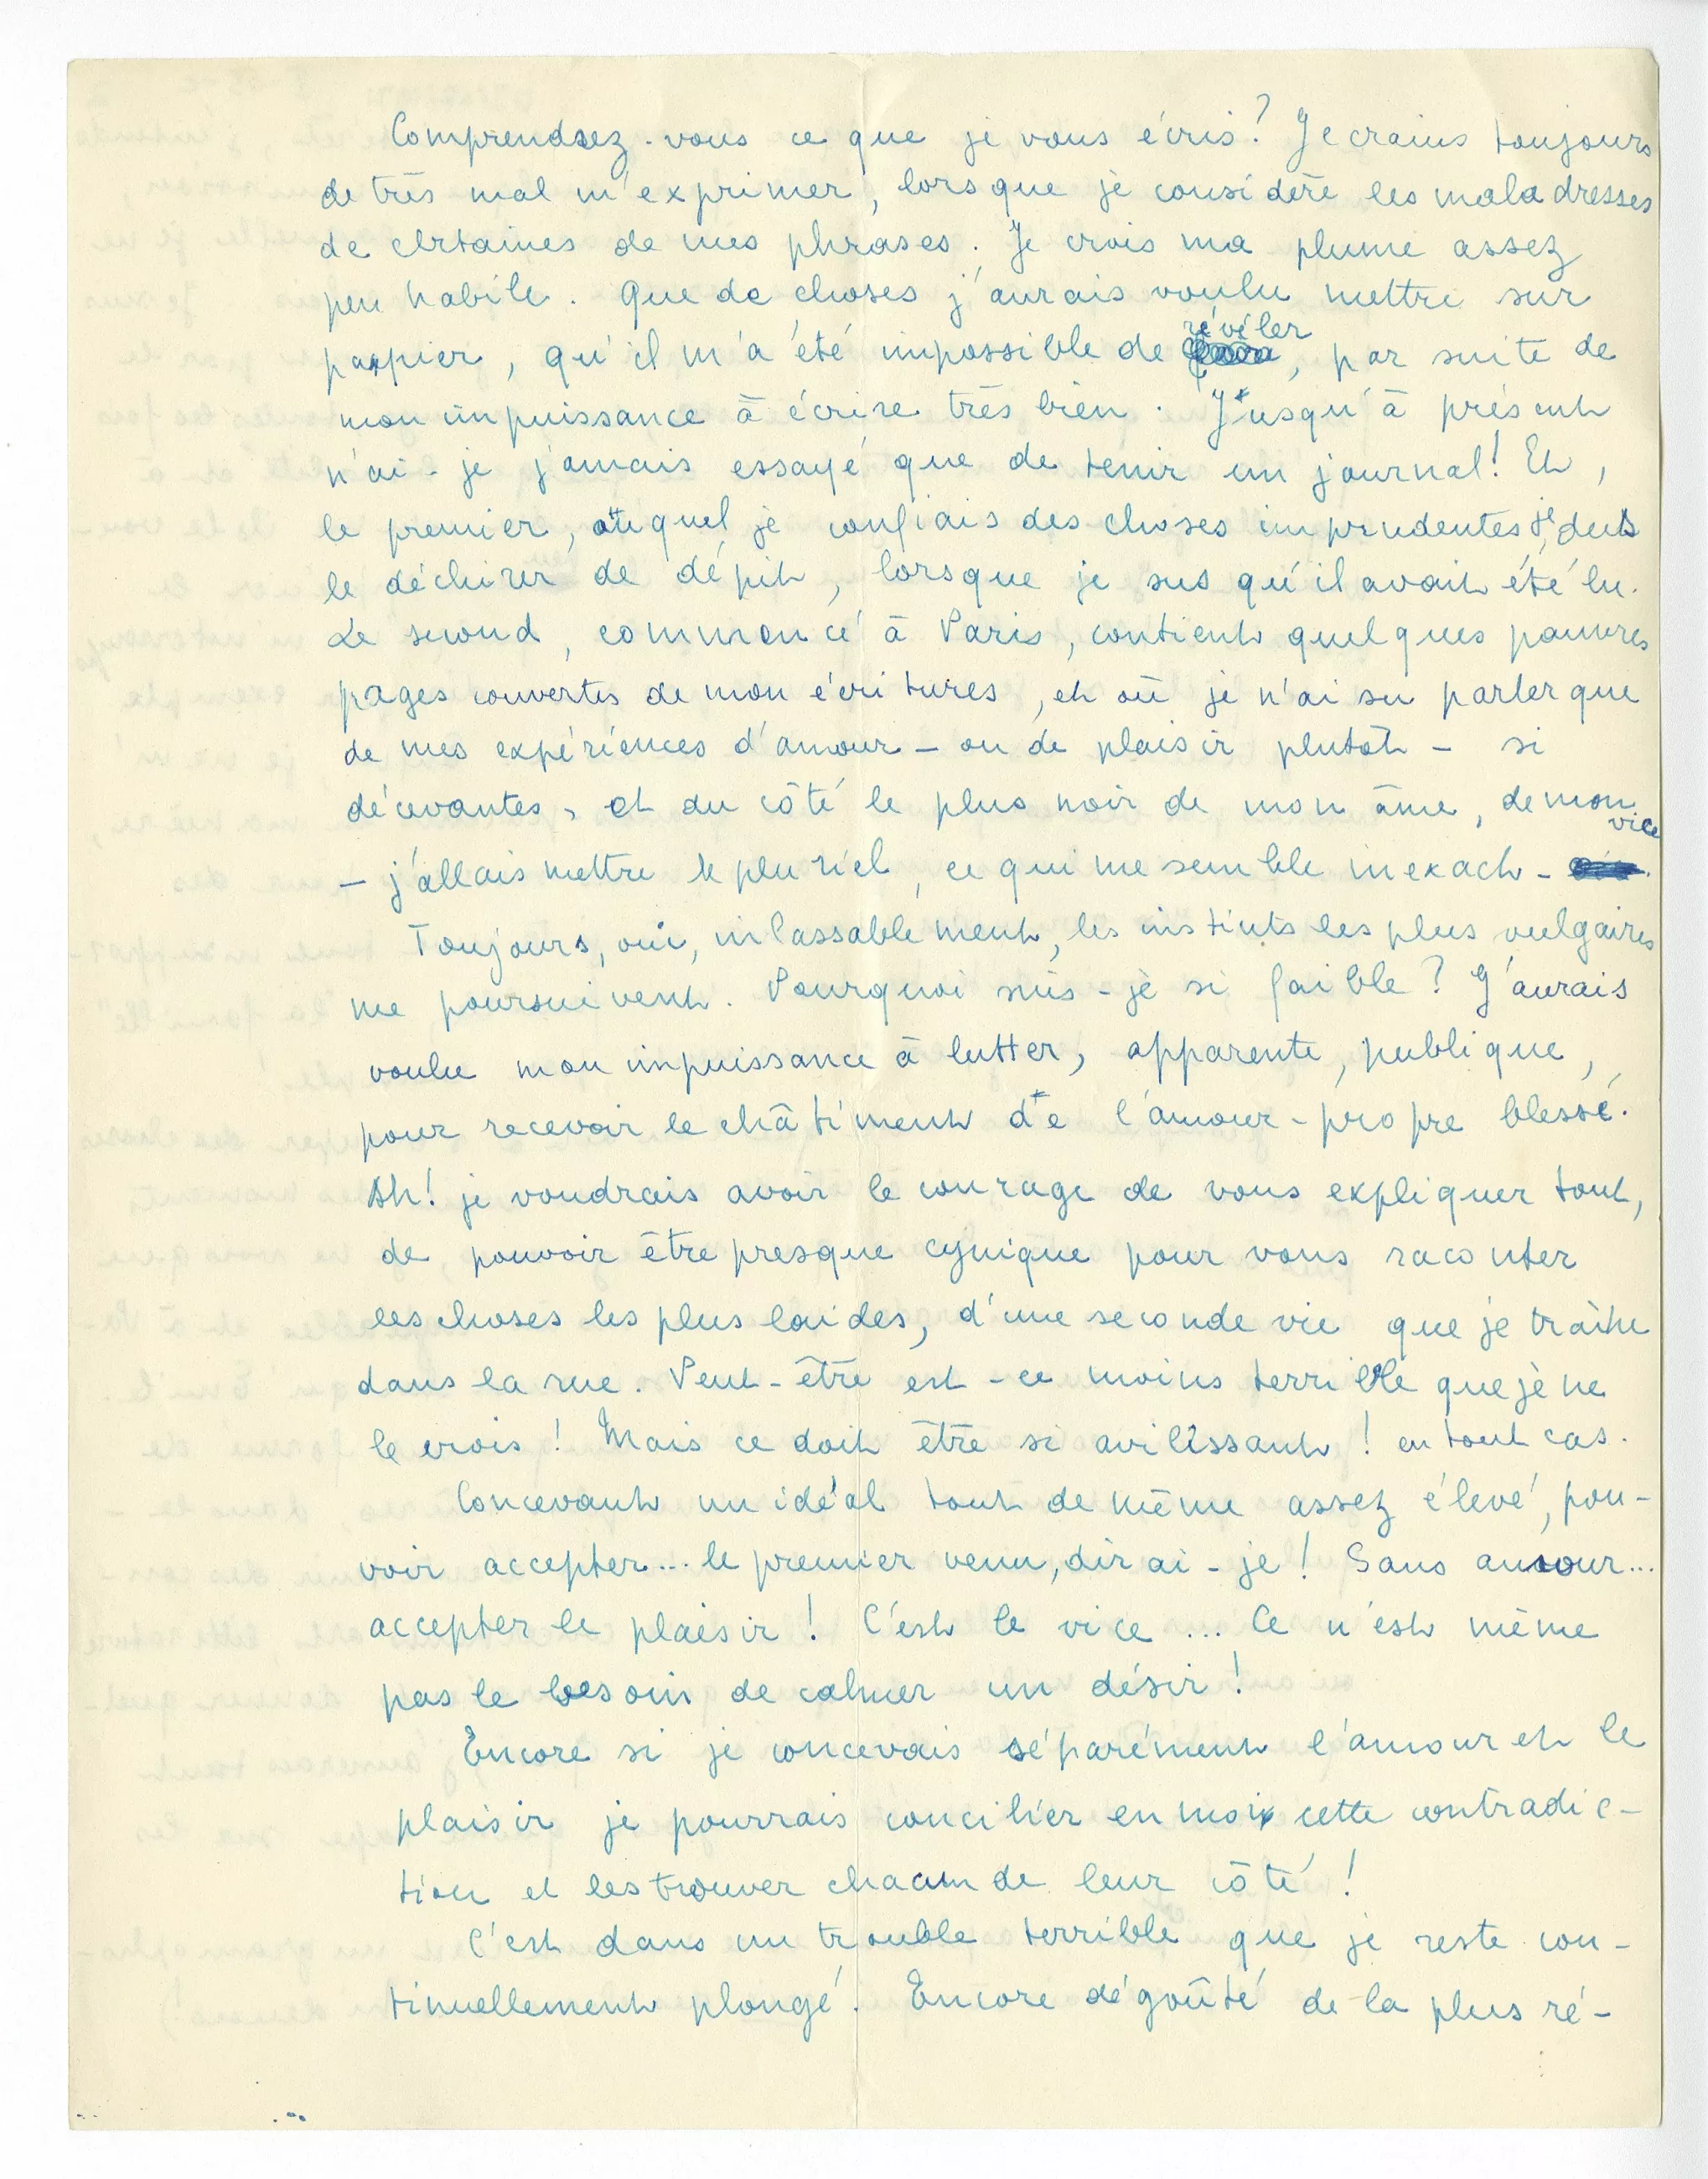 Comprendrez-vous ce que je vous écris? Je crains toujours
de très mal m'exprimer, lorsque je considère les maladresses
de certaines de mes phrases. Je crois ma plume assez
peu habile. Que de choses j'aurais voulu mettre sur
papier, qu'il m'a été impossible de révéler, par suite de
mon impuissance à écrire très bien. Jusqu'à présent
n'ai-je jamais essayé que de tenir un journal! Et,
le premier, auquel je confiais des choses imprudentes, je dus
le déchirer de dépit, lorsque je sus qu'il avait été lu.
Le second, commencé à Paris, contient quelques pauvres
pages couvertes de mon écritures, et où je n'ai su parler que
de mes expériences d'amour - ou de plaisir plutôt - si
décevantes, et du côté le plus noir de mon âme, de mon vice
- j'allais mettre le pluriel, ce qui me semble inexact -.
Toujours, oui, inlassablement, les instints les plus vulgaires
me poursuivent. Pourquoi suis-je si faible? J'aurais
voulu mon impuissance à lutter, apparente, publique,
pour recevoir le châtiment de l'amour-propre blessé.
Ah! je voudrais avoir le courage de vous expliquer tout,
de pouvoir être presque cynique pour vous raconter
les choses les plus laides, d'une seconde vie que je traîne
dans la rue. Peut-être est-ce moins terrible que je ne
le crois! Mais ce doit être si avilissant! en tout cas.
Concevant un idéal tout de même assez élevé, pou-
voir accepter... le premier venu, dirai-je! Sans amour...
accepter le plaisir! C'est le vice... Ce n'est même
pas le besoin de calmer un désir!
Encore si je concevais séparément l'amour et le
plaisir je pourrais concilier en moi cette contradic-
tion et les trouver chacun de leur côté!
C'est dans un trouble terrible que je reste con-
tinuellement plongé. Encore dégoûté de la plus ré-